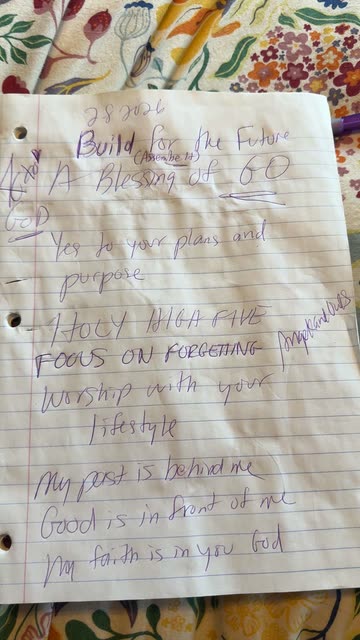 2 8 2026
Build for the Future
A Blessing of GO
GOD
Yes to your plans and
purpose
HOLY HIGH FIVE
FOCUS ON FORGETTING
Worship with your
lifestyle
My past is behind me
Good is in front of me
My faith is in you God